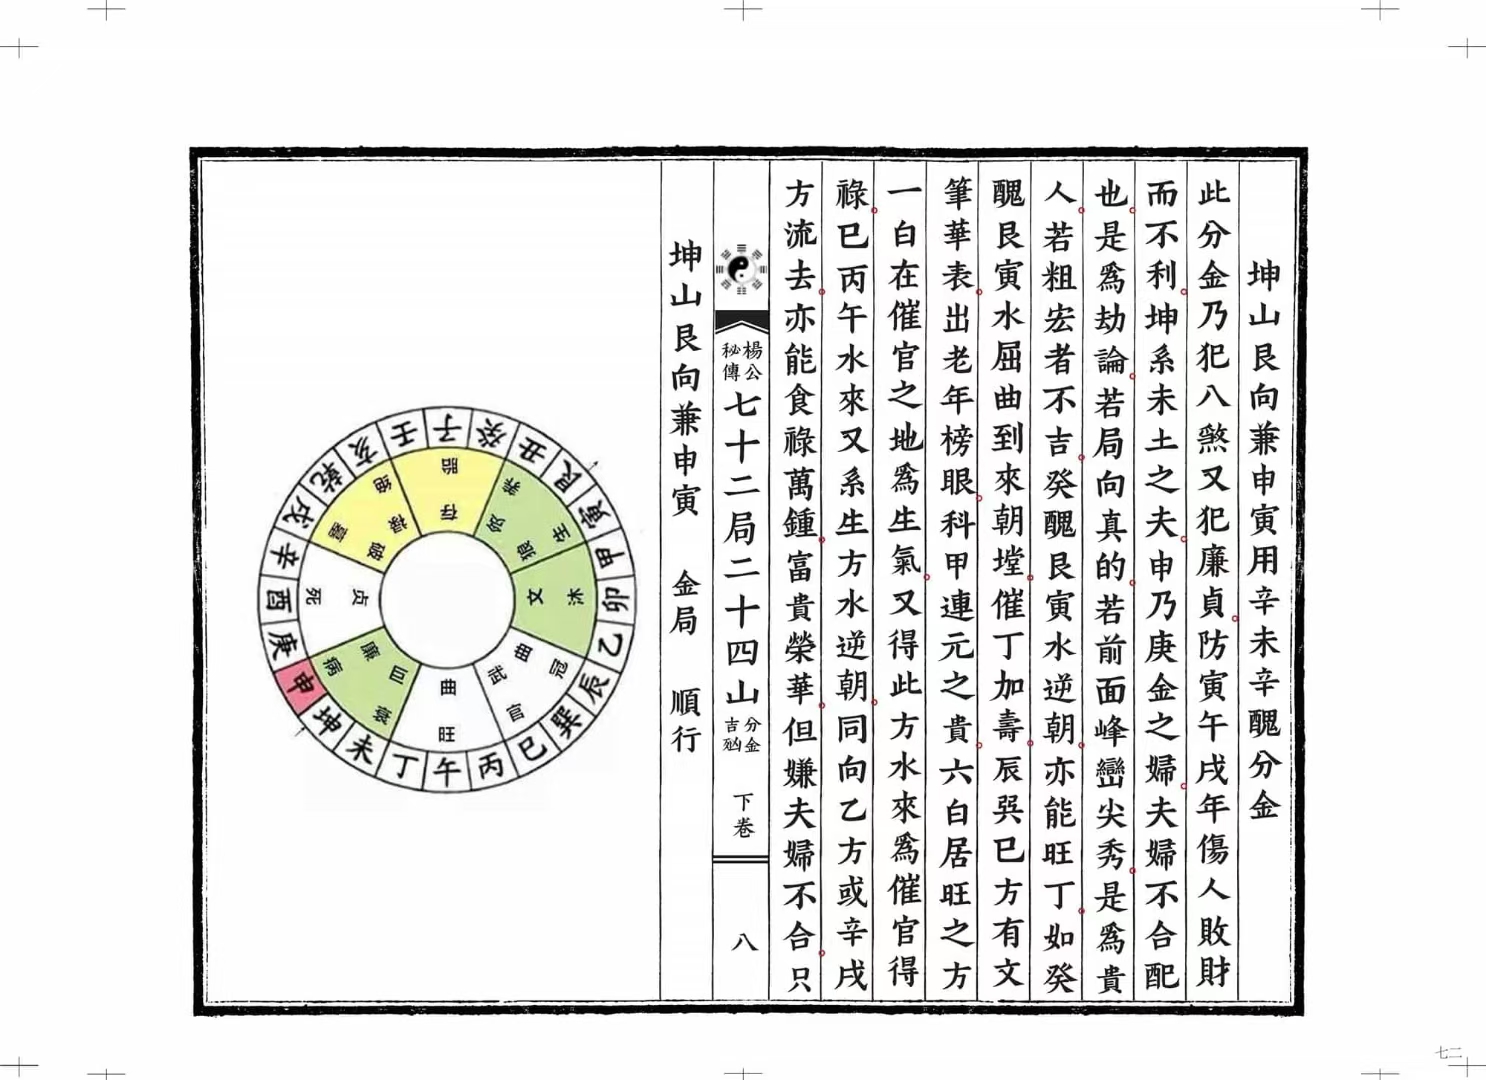 坤山艮向兼申寅用辛未辛醜分金
此分金乃犯八煞又犯廉貞防寅午戌年傷人敗財
而不利坤系未土之夫申乃庚金之婦夫婦不合配
也是爲劫論若局向真的若前面峰巒尖秀是爲貴
人若粗宏者不吉癸醜艮寅水逆朝亦能旺丁如癸
醜艮寅水屈曲到來朝堂催丁加壽辰巺巳方有文
筆華表出老年榜眼科甲連元之貴六白居旺之方
一白在催官之地爲生氣又得此方水來爲催官得
祿巳丙午水來又系生方水逆朝同向乙方或辛戌
方流去亦能食祿萬鍾富貴榮華但嫌夫婦不合只
楊公
秘傳
七十二局二十四山
分金
吉凶
下卷
八
坤山艮向兼申寅 金局 順行
子癸丑艮寅甲卯乙辰巽巳丙午丁未坤申庚酉辛戌乾亥壬
胎 养 生 沐 冠 官 旺 衰 病 死 墓 绝
存 狼 文 曲 武 曲 巨 廉 贞 破 禄
七二